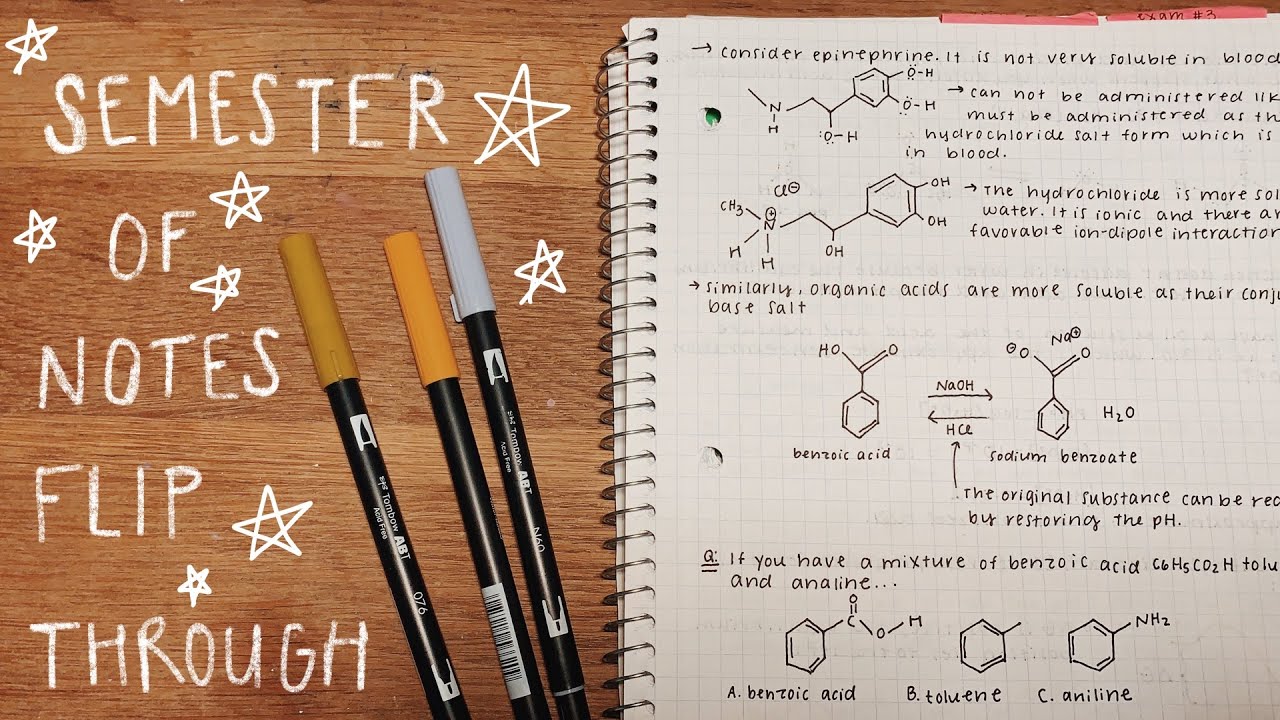 SEMESTER
OF
NOTES
FLIP
THROUGH
Tombow ABT
Acid Free
076
Tombow ABT
Acid Free
N60
exam #3
→ Consider epinephrine. It is not very soluble in blood
Ö-H
Ö-H
N
H
Ö-H
→ can not be administered
must be administered as
hydrochloride salt form which is
in blood.
Cl⊖
CH3
N⊕
H
H
OH
OH
OH
→ The hydrochloride is more
water. It is ionic and there
favorable ion-dipole
→ similarly, organic acids are more soluble as their
base salt
HO
O
NaOH
HCl
benzoic acid
Na⊕
⊖O
O
H2O
sodium benzoate
The original substance can be
by restoring the pH.
Q: If you have a mixture of benzoic acid C6H5CO2H
and analine...
O
C
O
H
NH2
A. benzoic acid
B. toluene
C. aniline